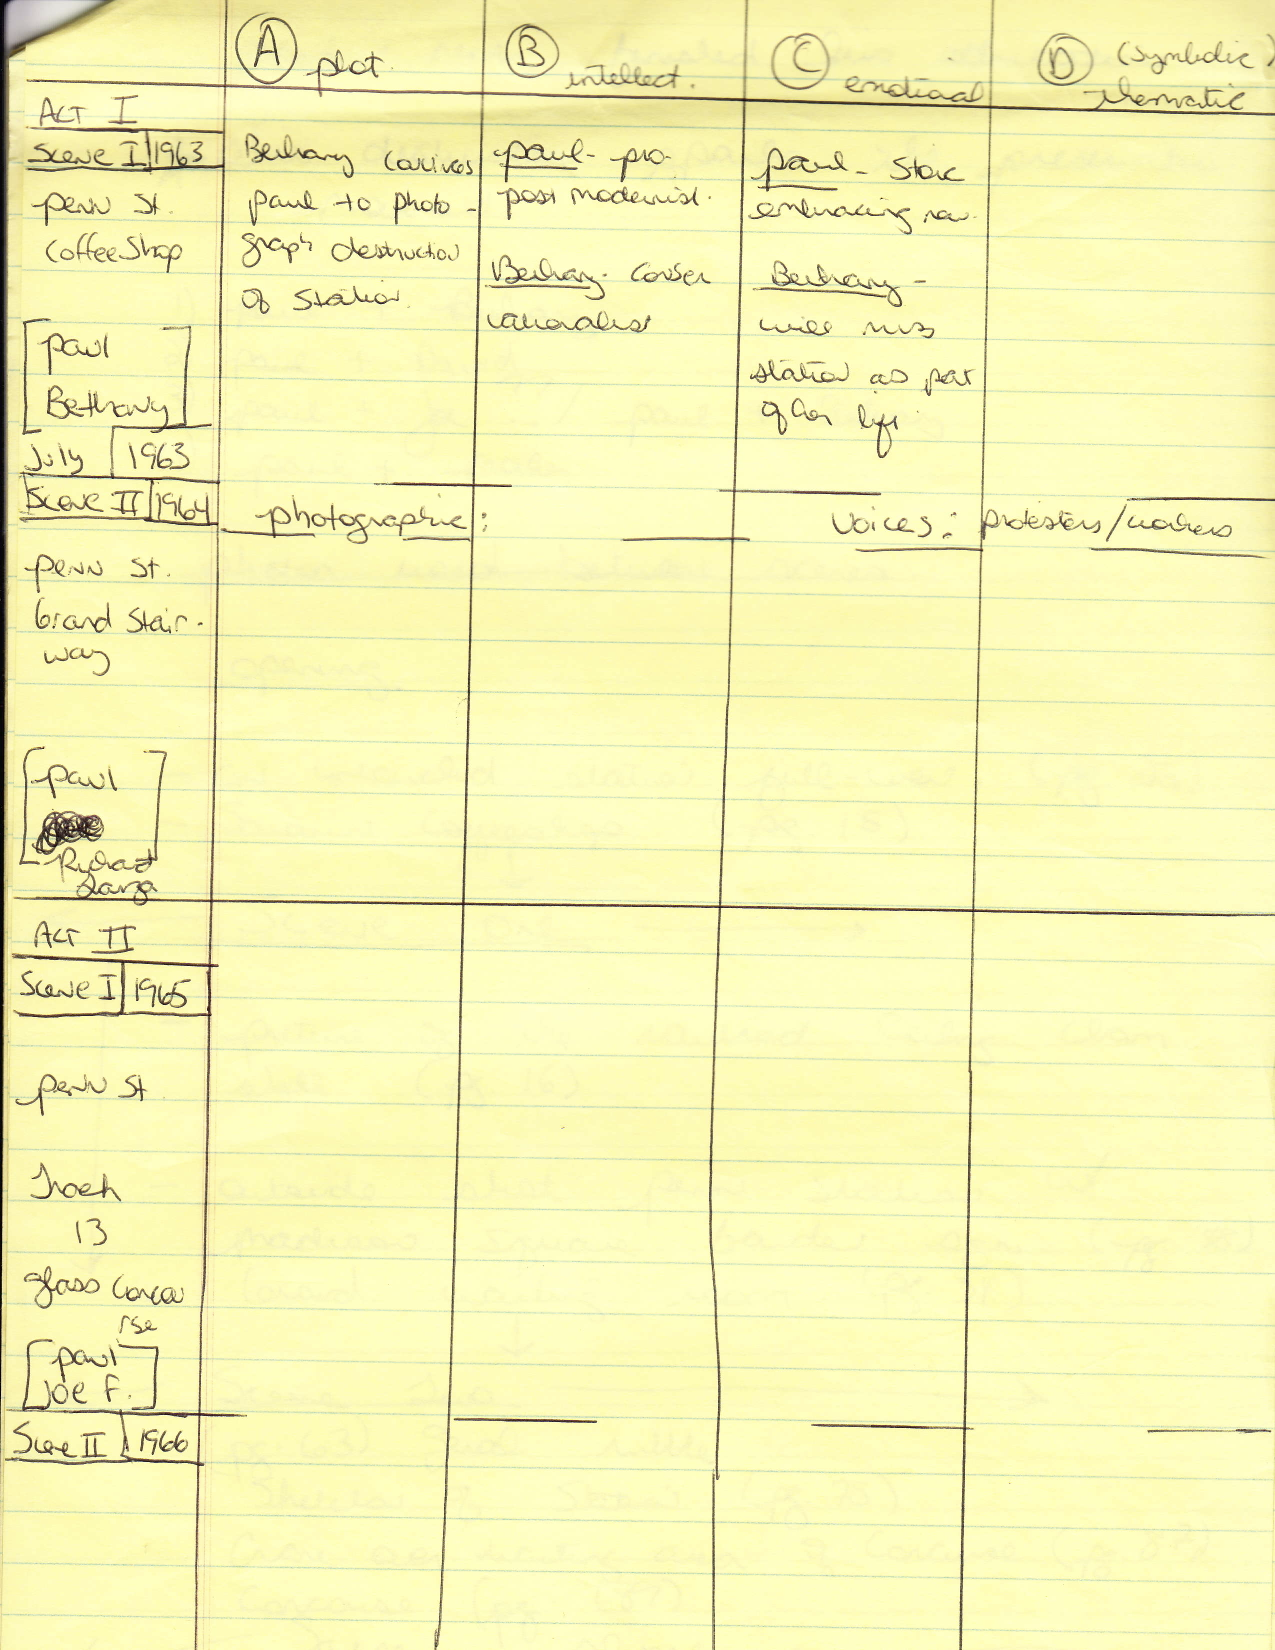 A plot.
B intellect.
C emotional
D (symbolic)
thematic
ACT I
Scene I 1963
Penn St.
Coffee Shop
[Paul
Bethany]
July 1963
Bethany convinces
Paul to photo-
graph destruction
of station.
Paul - pro-
post modernist.
Bethany - conser
vationalist
Paul - stoic
embracing new.
Bethany -
will miss
station as part
of her life
Scene II 1964
photographic:
Voices: protesters/workers
Penn St.
Grand Stair-
way
[Paul
Richard
]
ACT II
Scene I 1965
Penn St
Track
13
glass concou
rse
[Paul
Joe F.]
Scene II 1966